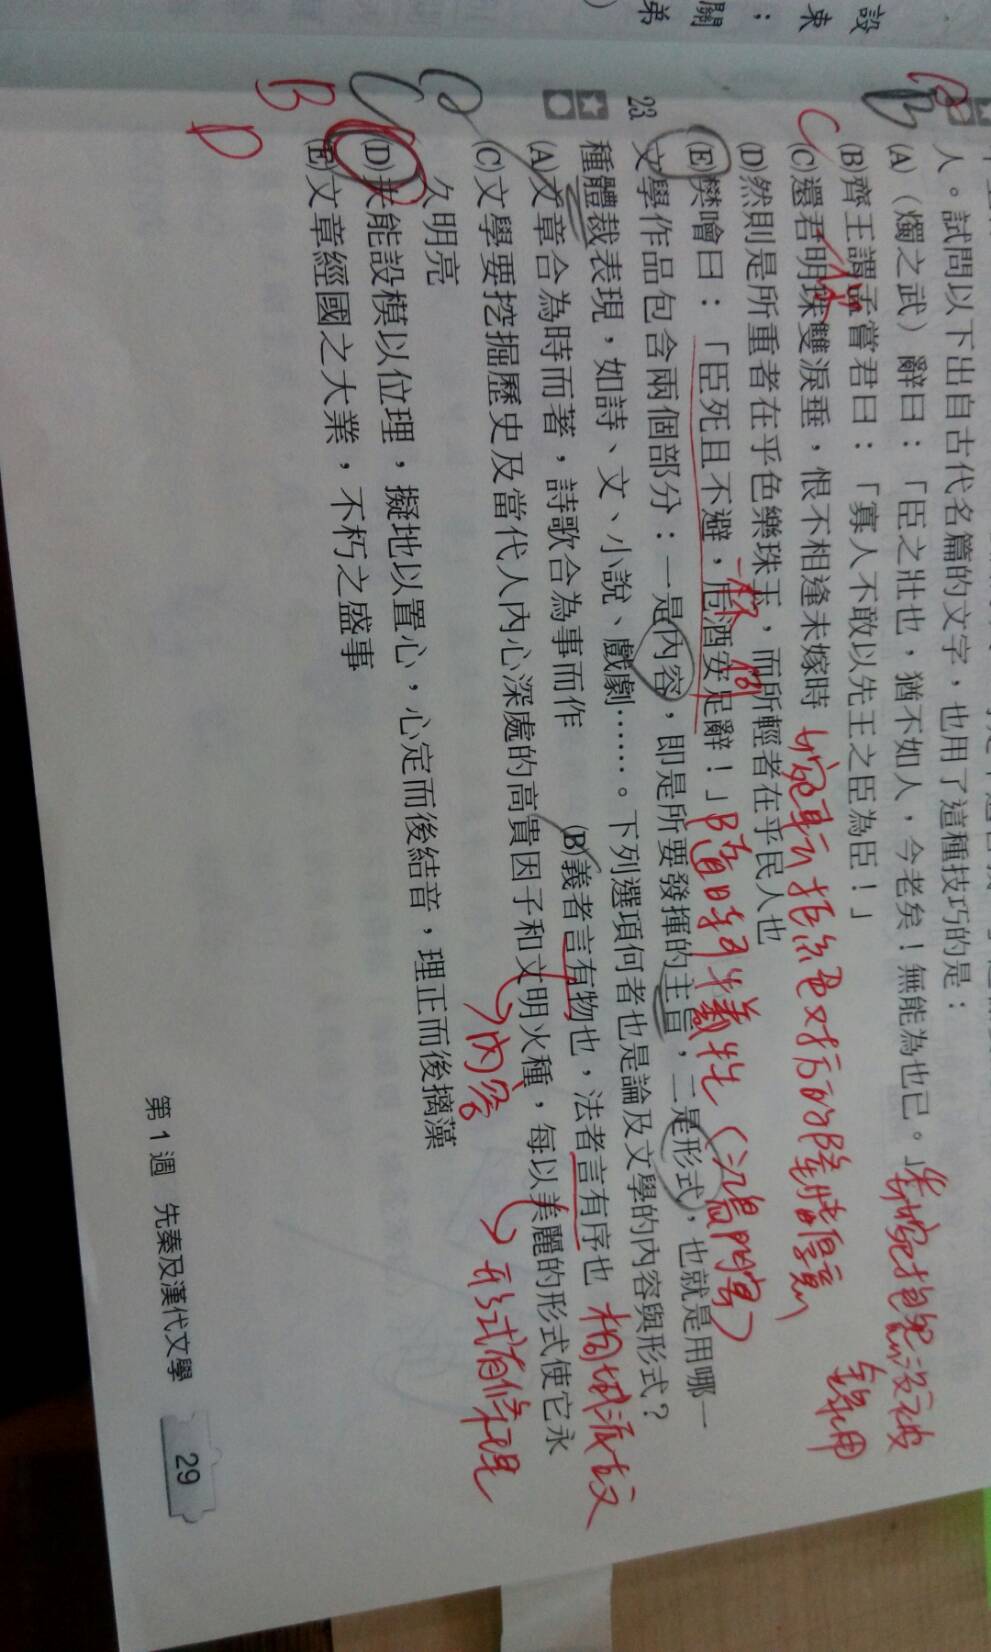 設
束
：
關
弟
人。試問以下出自古代名篇的文字，也用了這種技巧的是：
B
B
(A)（燭之武）辭曰：「臣之壯也，猶不如人，今老矣！無能為也已。」
(B)齊王謂孟嘗君曰：「寡人不敢以先王之臣為臣！」
C
(C)還君明珠雙淚垂，恨不相逢未嫁時
錄用
(D)然則是所重者在乎色樂珠玉，而所輕者在乎民人也
一杯
(E)樊噲曰：「臣死且不避，卮酒安足辭！」隨時犧牲（鴻門宴）
23. 文學作品包含兩個部分：一是內容，即是所要發揮的主旨，二是形式，也就是用哪一
種體裁表現，如詩、文、小說、戲劇……。下列選項何者也是論及文學的內容與形式？
(A)文章合為時而著，詩歌合為事而作
(B)義者言有物也，法者言有序也 桐城派古文
(C)文學要挖掘歷史及當代人內心深處的高貴因子和文明火種，每以美麗的形式使它永
久明亮
內容
形式有條理
(D)夫能設模以位理，擬地以置心，心定而後結音，理正而後摛藻
(E)文章經國之大業，不朽之盛事
C
B
D
第1週 先秦及漢代文學 29